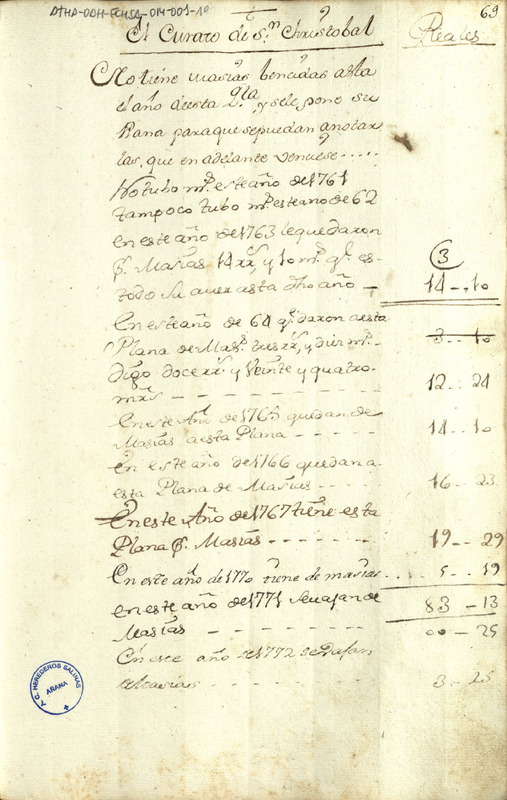 ATHA-DDH-FCHSA-014-001-10
69
El Curato de S.n Christobal
Reales
No tiene masias bencidas asta
el año de esta q.ta y se le pone su
Plana para que se puedan anotar
las que en adelante venciese.....
No tubo m.s este año de 1761
tampoco tubo m.s este ano de 62
en este año de 1763 le quedaron
p.r Masias 14 rr.s y 10 m.s q.e es
todo su aver asta dho año —
3
14--10
En este año de 64 q.daron a esta
Plana de Mas.s tres rr.s y diez m.s
3--10
digo doce rr.s y Veinte y quatro
mrs - - - - - -
12..24
En este Año de 1765 quedan de
Masias a esta Plana - - - -
14--10
en este año de 1766 quedan a
esta Plana de Masias - - - -
16--23
En este Año de 1767 tiene esta
Plana p.r Masias - - - - - -
19--29
En este año de 1770 tiene de masias.....
5--19
en este año de 1771 se vajan de
83-13
Masias - - - - - -
00--25
En este año de 1772 se Bajan
de Masias - - - - - -
3-25
A. C. HEREDEROS SALINAS
ARANA